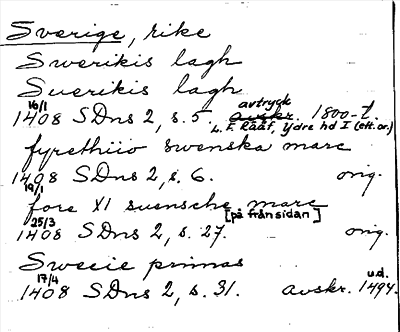 Sverige, rike
Swerikis lagh
Suerikis lagh
16/1 avtryck
1408 SDns 2, s. 5. avskr. 1800-t.
L. F. Rääf, Ydre hd I (ett. or.)
fyrethiio swenska marc
1408 SDns 2, s. 6. orig.
19/1
fore XI suensche marc
25/3 [på frånsidan]
1408 SDns 2, s. 27. orig.
Swecie primas
17/4 u.d.
1408 SDns 2, s. 31. avskr. 1494.